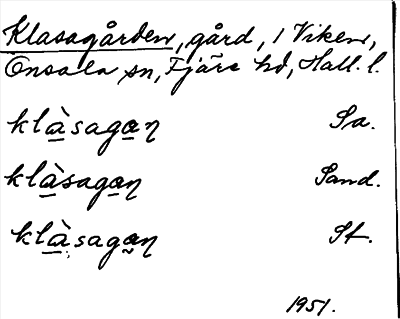 Klasagården, gård, i Viken,
Onsala sn, Fjäre hd, Hall. l.
klàsagan̥ Sa.
klàsagan̥ Sand.
klàsagan̥ St.
1951.